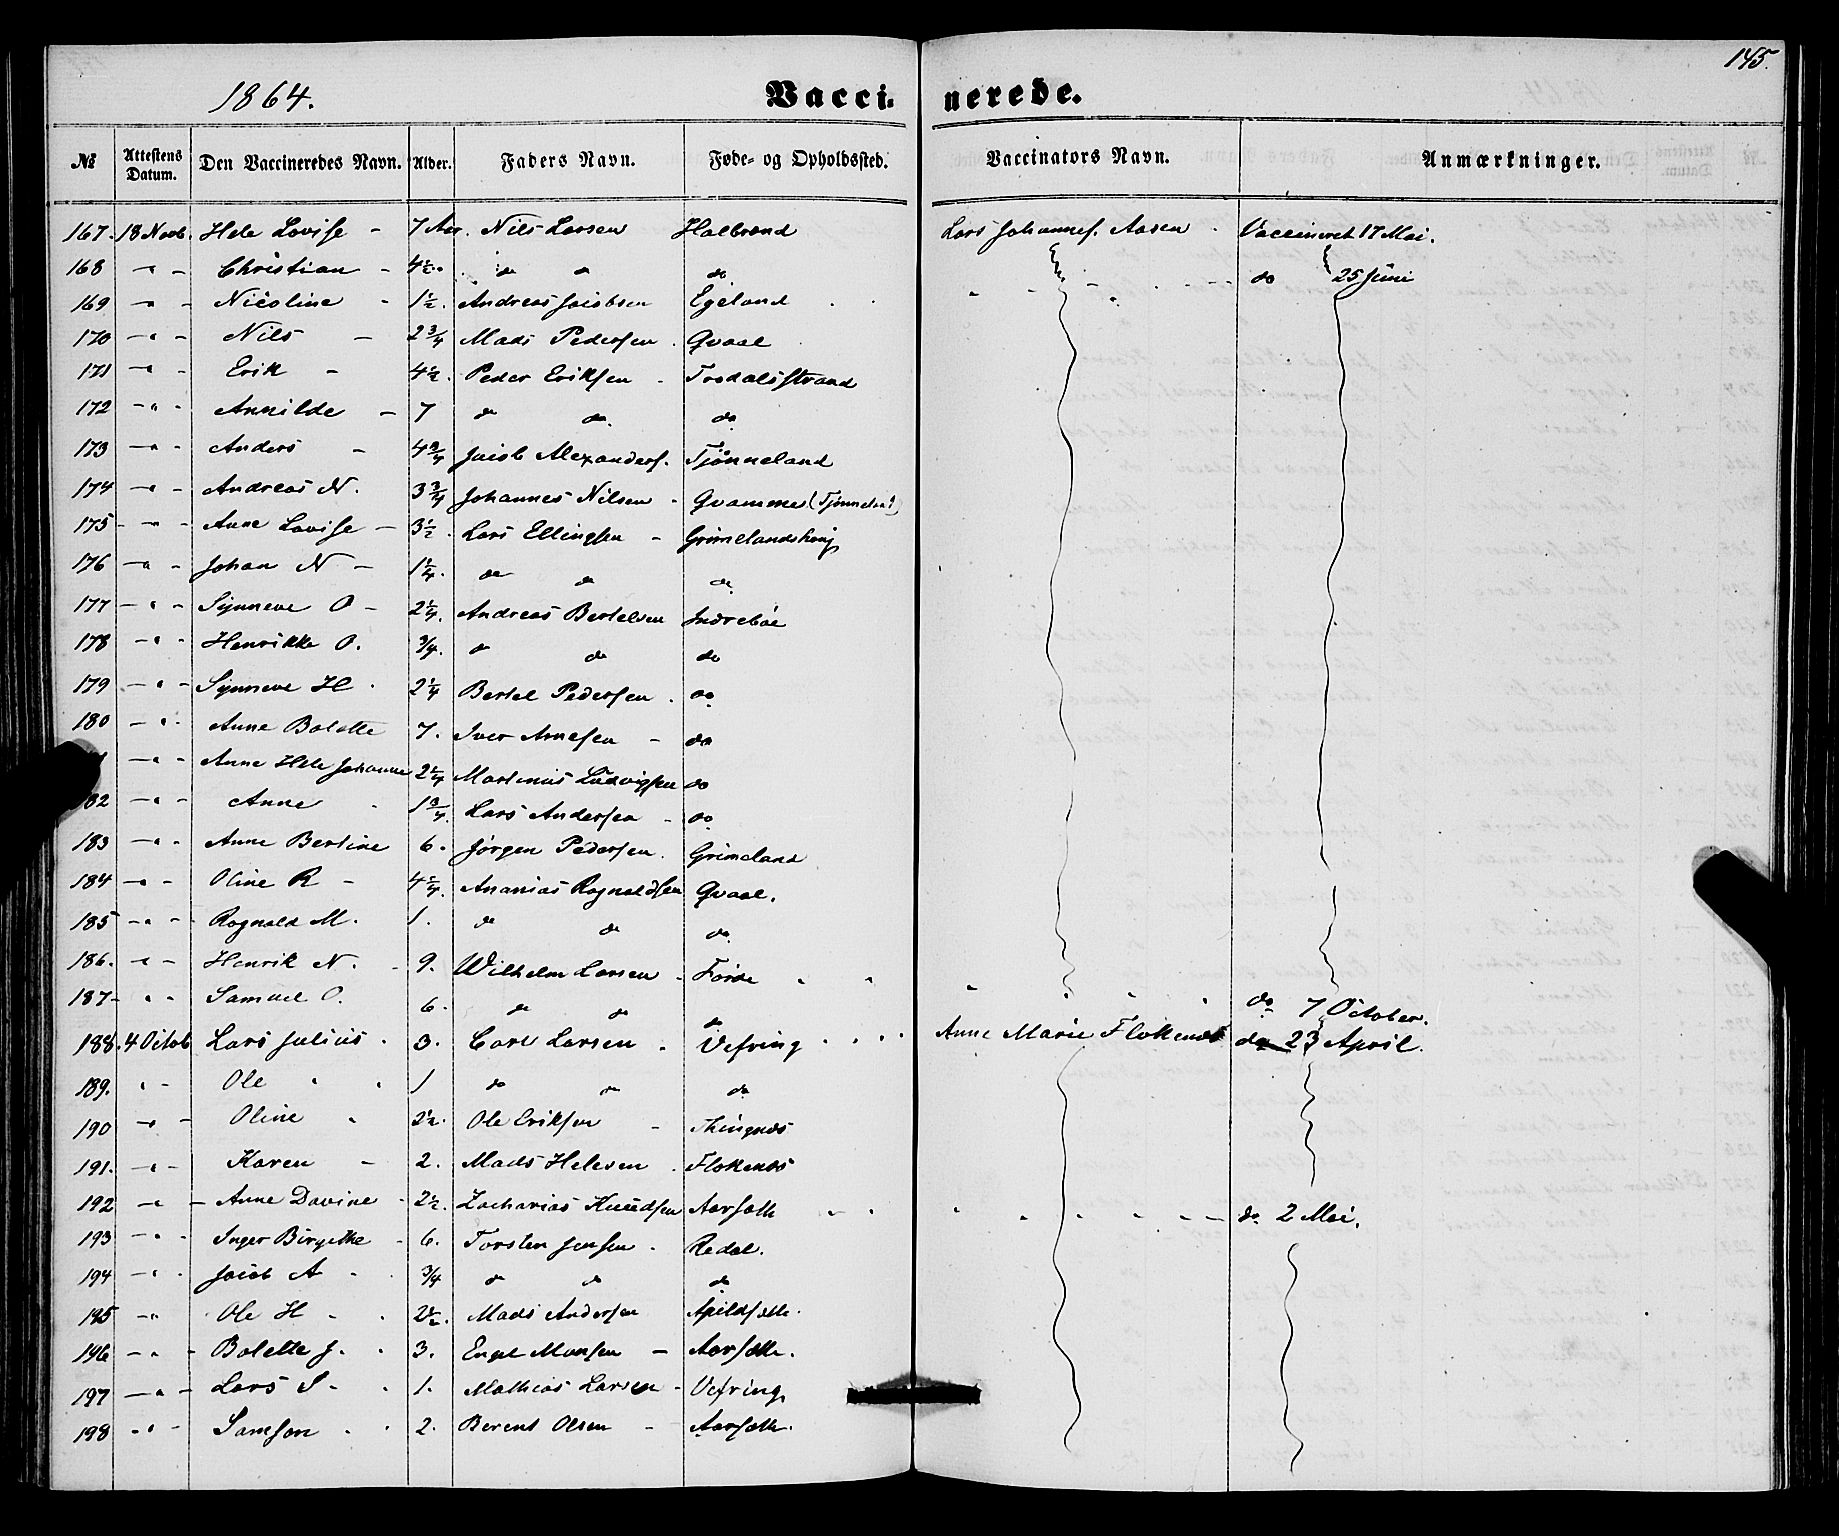 145.
1864. Vaccinerede.
№ Attestens Datum. Den Vaccineredes Navn. Alder. Faders Navn. Føde- og Opholdssted. Vaccinators Navn. Anmærkninger.
167. 18 Novb. Hele Lovise - 7 Aar. Nils Larsen Halbrend Lars Johannes. Aasen Vaccineret 17 Mai.
168 - " - Christian - 4½. do do do do 25 Juni
169 - " - Nicoline - 1½. Andreas Jacobsen Egeland
170 - " - Nils - 2¾ Mads Pedersen. Qvaal
171 - " - Erik - 4½. Peder Eriksen - Trodalsstrand
172 - " - Annilde - 7 do do. do
173 - " - Anders - 4¾ Jacob Alexanders. Tjønneland
174 - " - Andreas N. 3¾ Johannes Nilsen - Qvamme (Tjønneland)
175 - " - Anne Lovise - 3½. Lars Ellingsen -
176 - " - Johan N - 1¼. do do do
177 - " - Synneve O - 2¼. Andreas Bertelsen Indrebøe
178 - " - Henrikke O. ¾. do do do
179 - " - Synneve H. 2¼ Bertel Pedersen. do
180 - " - Anne Bolette 7. Iver Arnesen - do
- " - Anne Hele Johanne 2¼ Martinus Ludvigsen do
182 - " - Anne 1¾. Lars Andersen - do
183 - " - Anne Bertine 6. Jørgen Pedersen. Grimeland
184 - " - Oline R - 4¼. Ananias Ragnaldsen Qvaal.
185 - " - Ragnald M. 1. do do do
186. - " - Henrik N. - 9. Wilhelm Larsen - Førde
187 - " - Samuel O. 6. do do do do 7 October.
188. 4 Octob Lars Julius. 3. Carl Larsen. Vefring Anne Marie Flokenes do 23 April.
189. " - Ole 1 do do do
190 - " - Oline 2½. Ole Eriksen - Thingnes
191. - " - Karen - 2. Mads Helesen. Flokenes
192 - " - Anne Davine - 2½. Zacharias Knudsen Aarsæth do 2 Mai.
193 - " - Inger Birgithe - 6. Torsten Jensen. Redal.
194 - " - Jacob A ¾ do do do
195 - " Ole H - 2½. Mads Andersen Apildsæth.
196 - " - Bolette J. 3. Engel Monsen - Aarsæth.
197 - " - Lars S - 1. Mathias Larsen - Vefring
198 - " - Samson 2. Berent Olsen - Aarsæth.